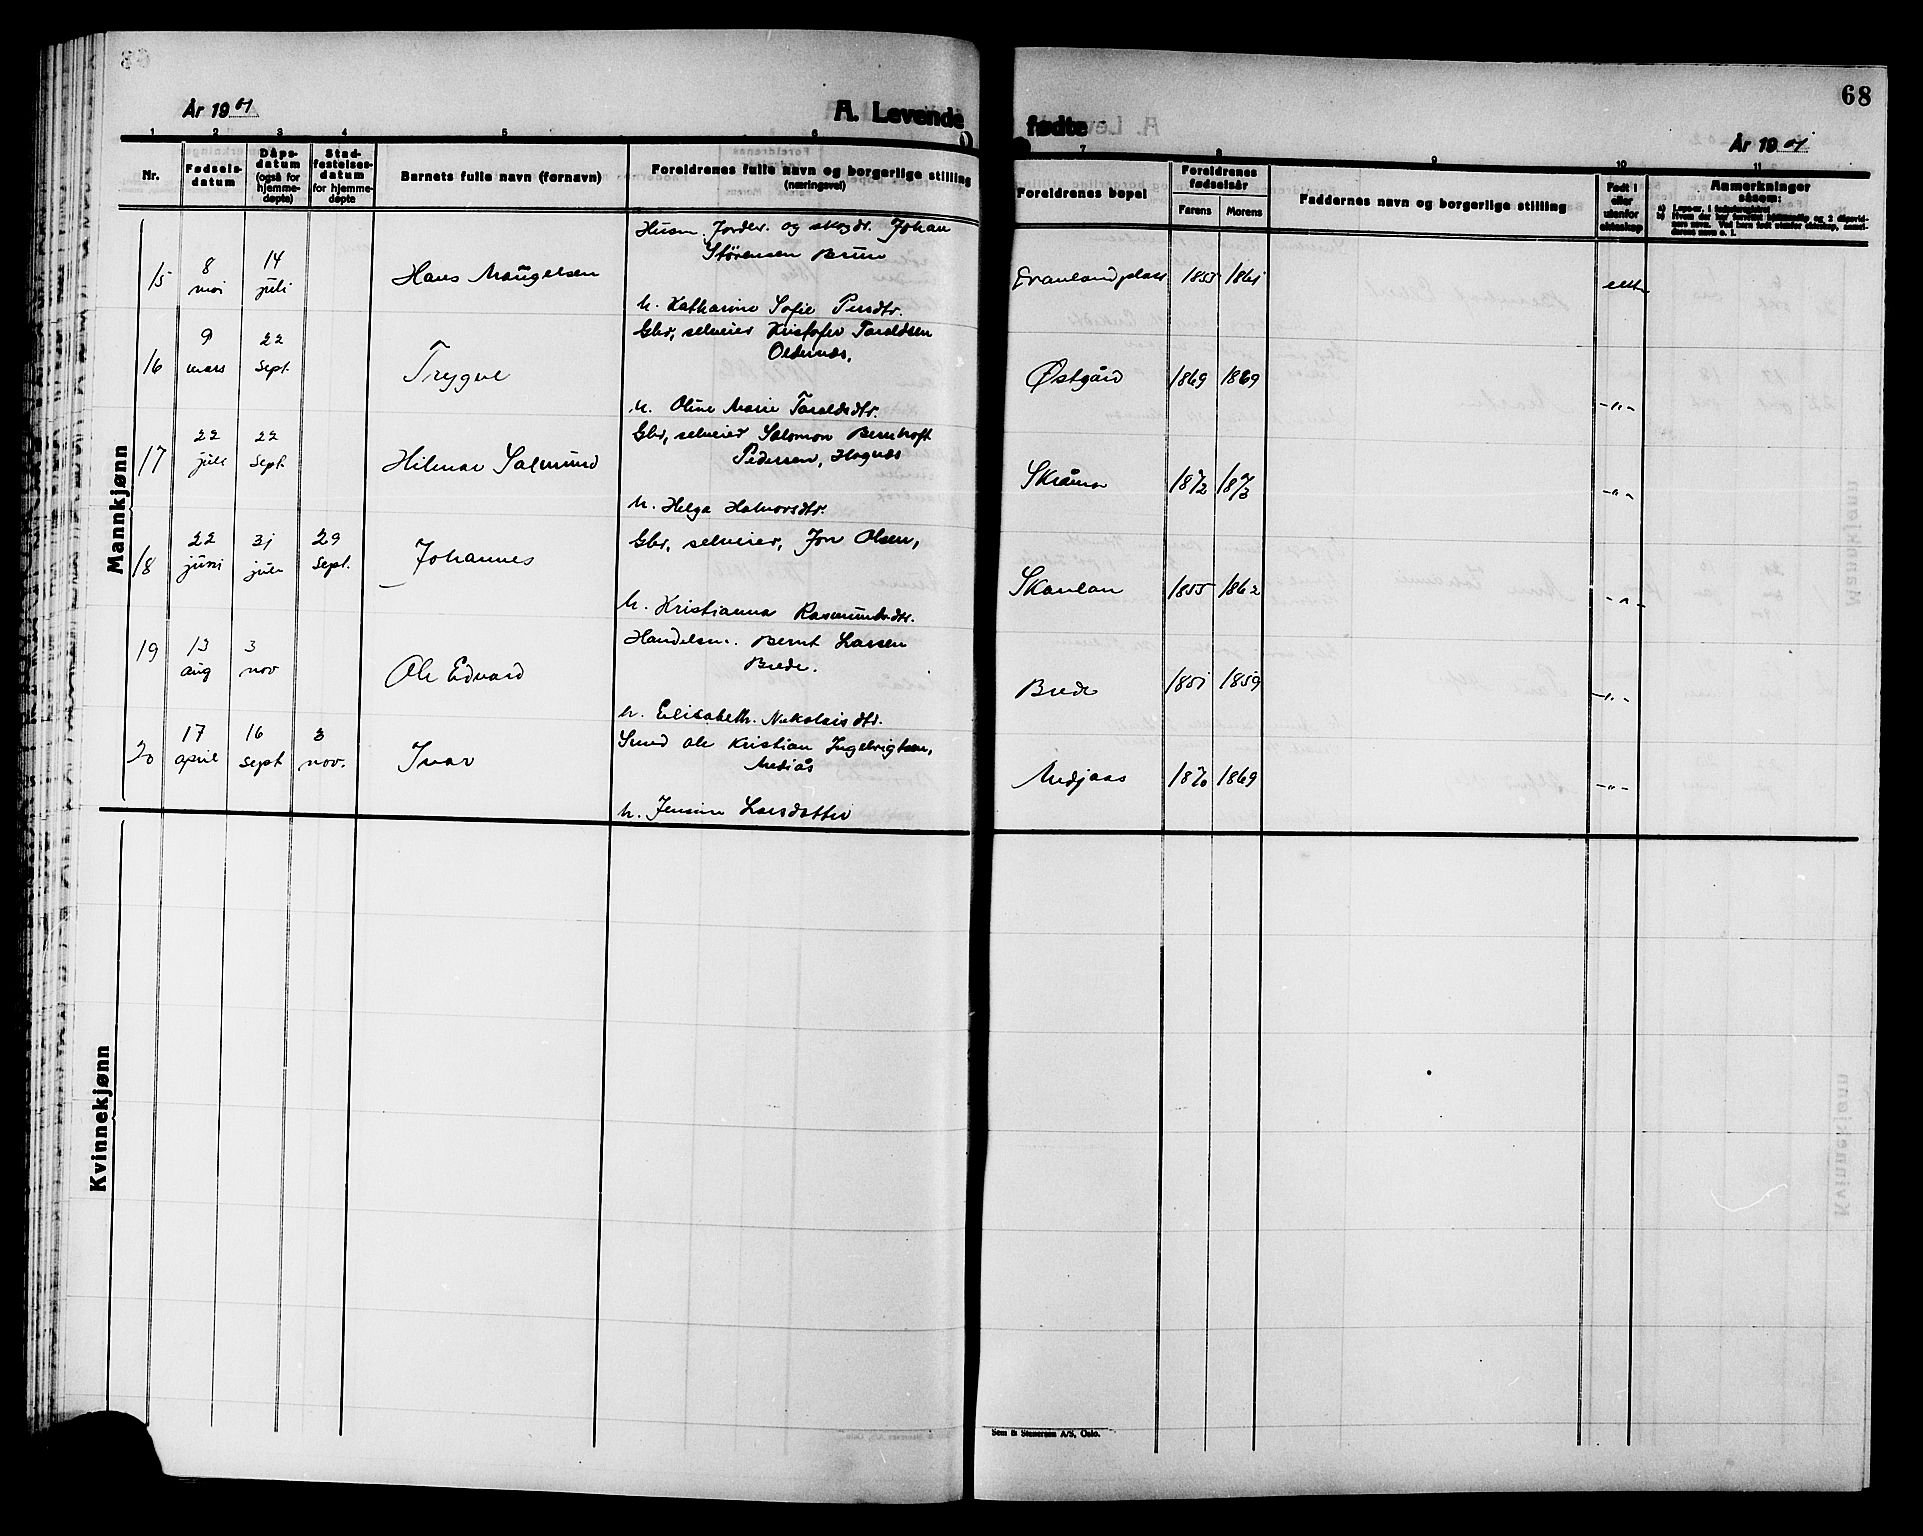 68
År 1901
A. Levende fødte
År 1901
1 2 3 4 5 6 7 8 9 10 11
Nr.
Fødsels-
datum
Dåps-
datum
(også for
hjemme-
døpte)
Stad-
festelses-
datum
for hjemme-
døpte
Barnets fulle navn (fornavn)
Foreldrenes fulle navn og borgerlige stilling
(næringsvei)
Foreldrenes bopel
Foreldrenes
fødselsår
Farens Morens
Faddernes navn og borgerlige stilling
Født i
eller
utenfor
ekteskap
Anmerkninger
såsom:
Mannkjønn
15 8 mai 14 juli
Husm. Jordbr. og skogdr. Johan
Størensen Brun
h. Katharine Sofie Persdtr.
1855 1861
ekte
16 9 mars 22 Sept. Trygve
Gbr, selveier Kristofer Taraldsen
Oldernes,
h. Oline Marie Taraldsdtr.
Østgård 1869 1869 -"-
17 22 juli 22 Sept. Hilmar Salmund
Gbr, selveier Salomon Bernhoft
Pedersen, Hognes
h. Helga Halvorsdtr.
1872 1873 -"-
18 22 juni 31 juli 29 Sept. Johannes
Gbr, selveier, Jon Olsen,
h. Kristianna Rasmusdtr.
Skanlan 1855 1862 -"-
19 13 aug 3 nov Ole Edvard
Handelsm. Bernt Larsen
Brede.
h. Elisabeth Nikolaisdtr.
Brede 1851 1859 -"-
20 17 april 16 sept 3 nov. Ivar
Smed Ole Kristian Ingebrigtsen,
Mediås
h. Jensine Larsdatter
Medjaas 1870 1869 -"-
Kvinnekjønn
Sem & Stenersen A/S, Oslo.